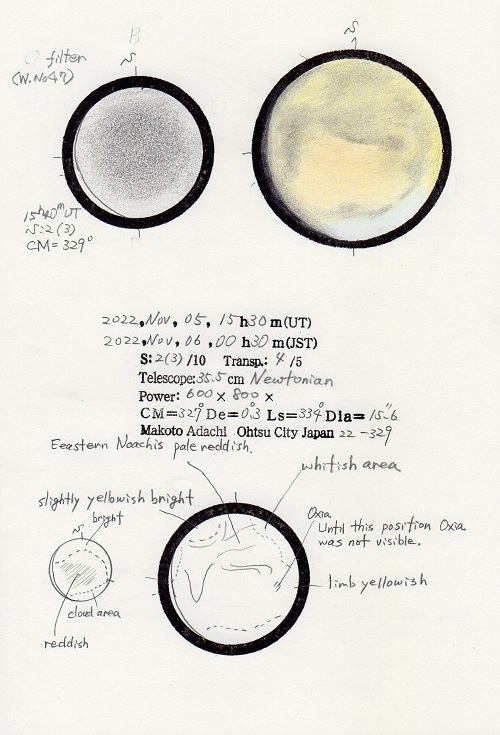 B
S
S
filter
(W.No47)
15h40mUT
S:2(3)
CM=329°
2022, Nov, 05, 15h30m(UT)
2022, Nov, 06, 00h30m(JST)
S:2(3)/10 Transp.: 4/5
Telescope:35.5cm Newtonian
Power: 600× 800×
CM=327° De=0.3° Ls=334° Dia=15."6
Makoto Adachi Ohtsu City Japan 22-329
Eeastern Noachis pale reddish.
whitish area
slightly yellowish bright
S bright
Oxia
Until this position Oxia
was not visible.
limb yellowish
cloud area
reddish